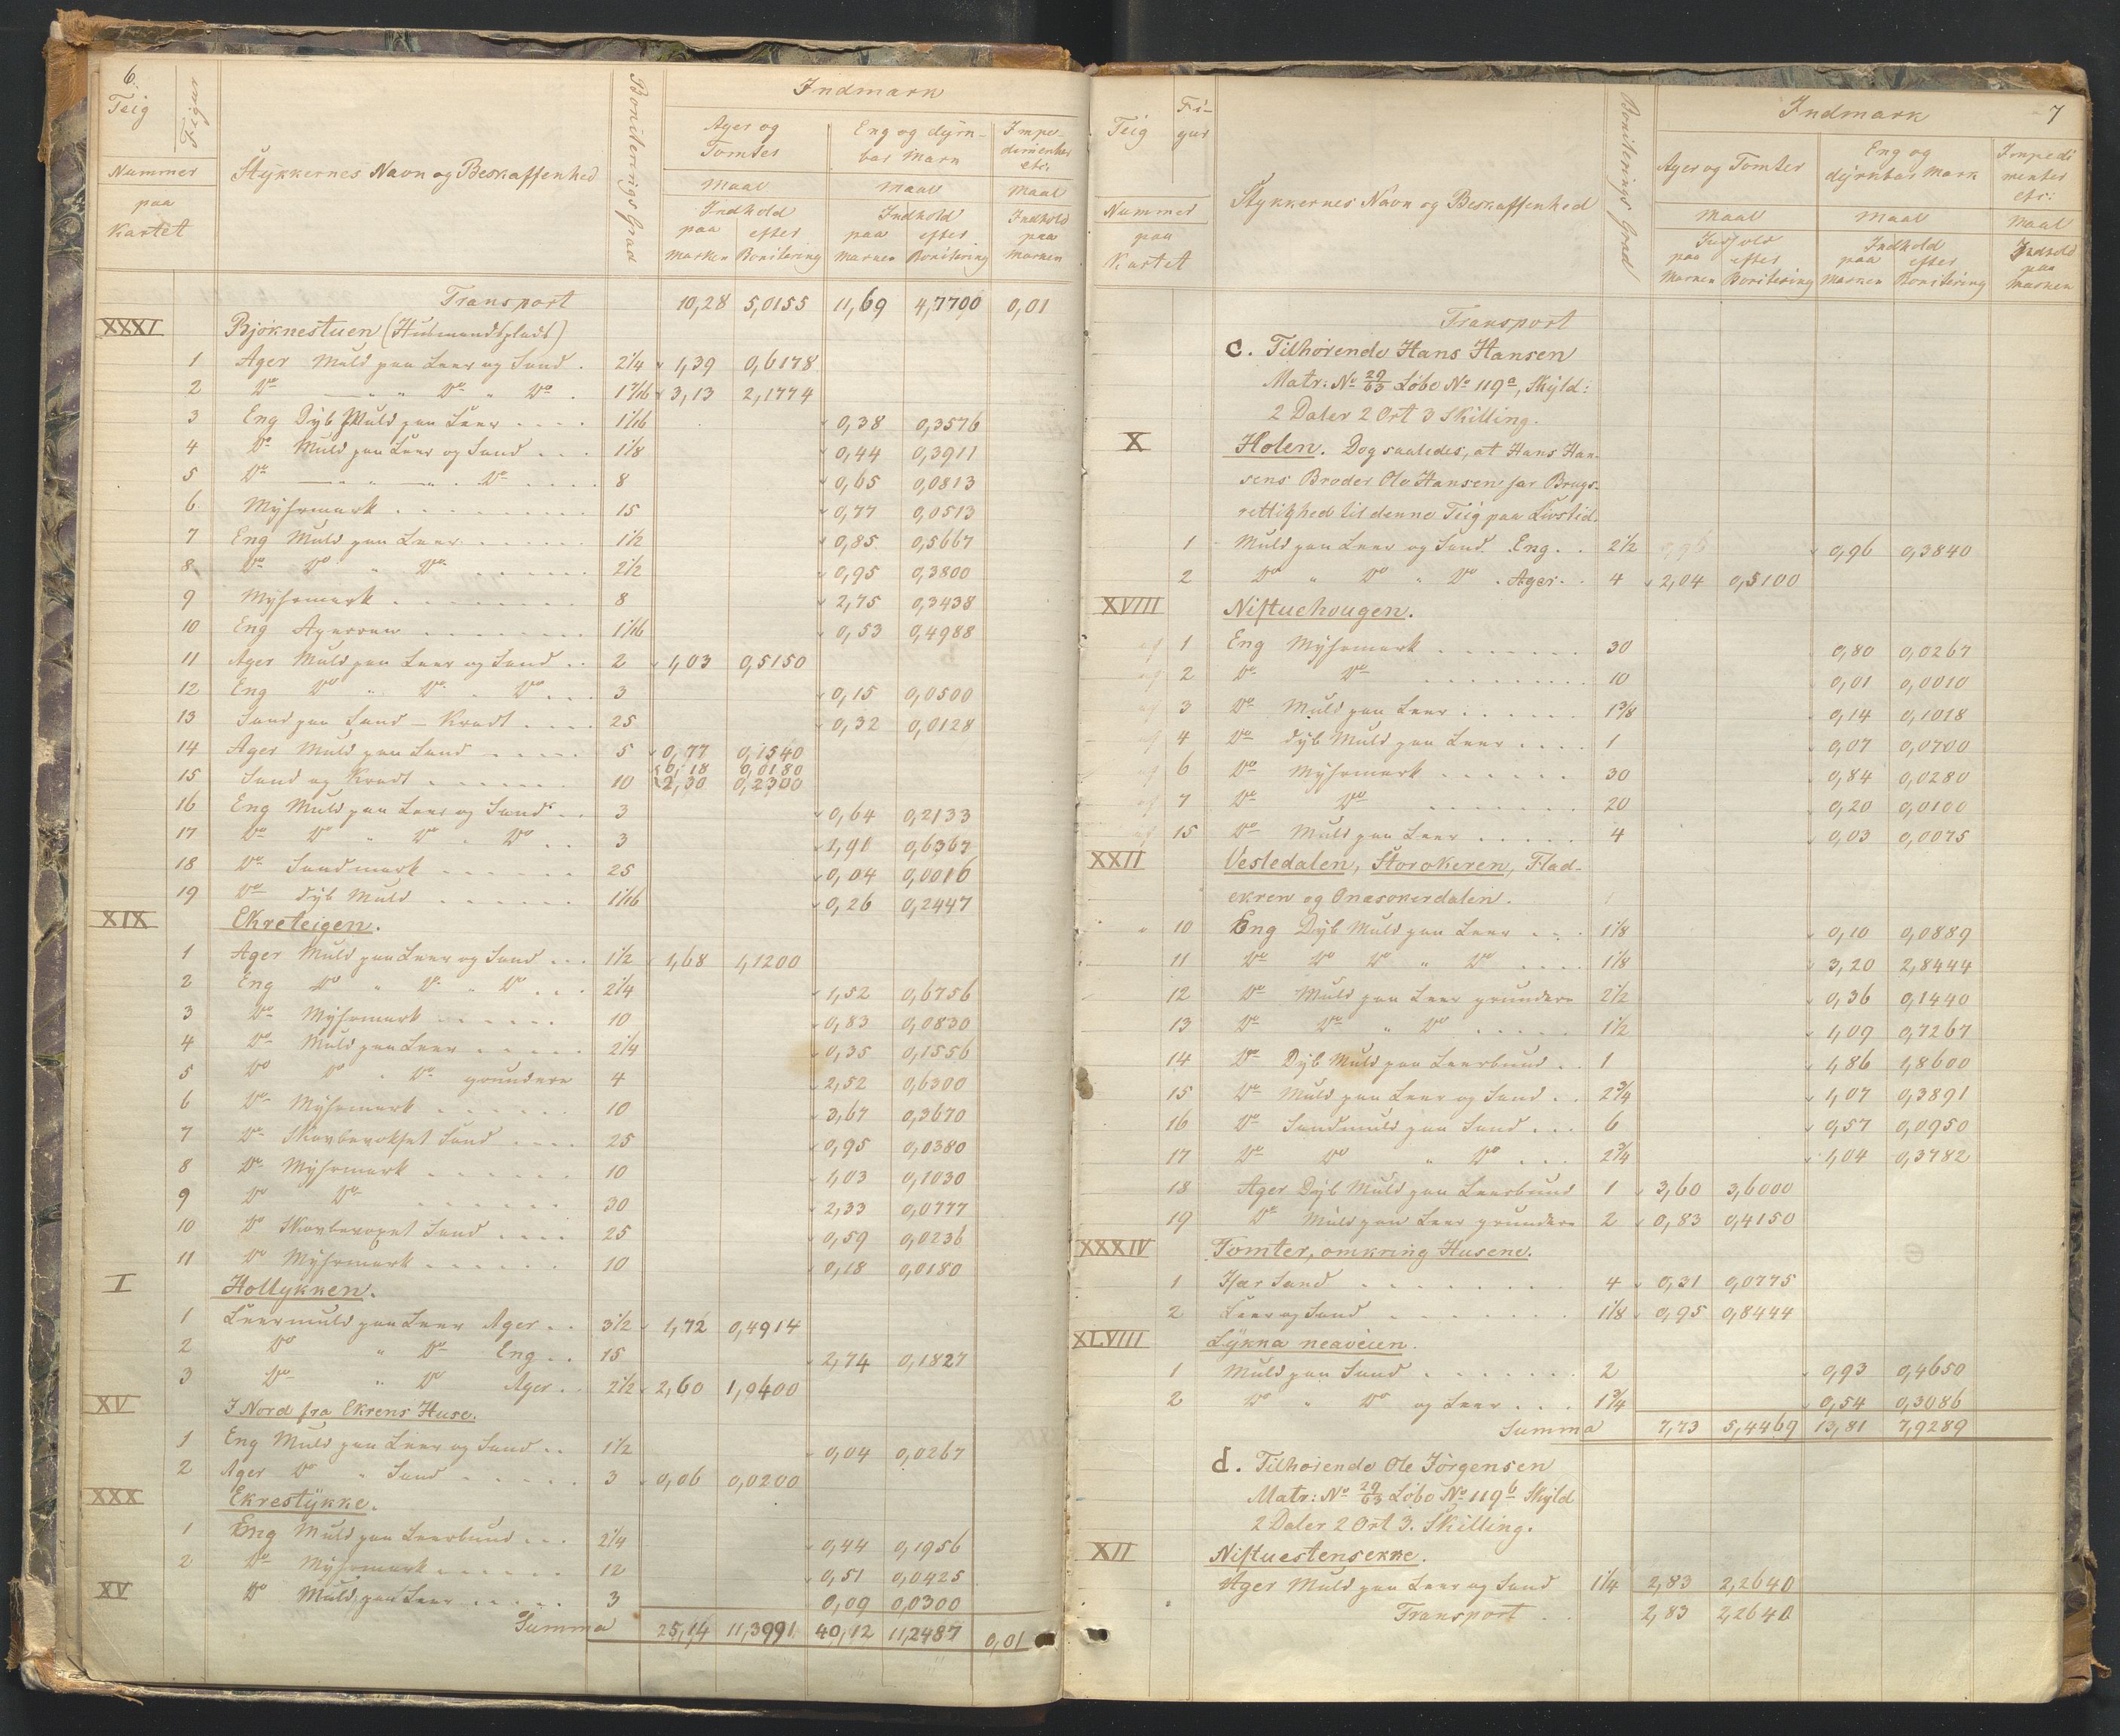 6.
Teig
Figur
Nummer
paa
Kartet
Stykkernes Navn og Beskaffenhed
Boniterings Grad
Indmark
Ager og Tomter
Eng og dyrk-
bar Mark
Impe-
dimenter
etc:
Maal Maal Maal
Indhold Indhold Indhold
paa efter paa efter paa
Marken Bonitering Marken Bonitering Marken
Transport 10,28 5,0155 11,69 4,7700 0,01
XXXI Bjørknestuen (Husmandsplads)
1 Ager Muld paa Leer og Sand . 2¼ 1,39 0,6178
2 Do — " " Do " Do . 1 7/16 3,13 2,1774
3 Eng Dyb Muld paa Leer .... 1 1/16 0,38 0,3576
4 Do Muld paa Leer og Sand ... 1⅛ 0,44 0,3911
5 Do — " — . Do .... 8 0,65 0,0813
6 Myhrmark ......... 15 0,77 0,0513
7 Eng Muld paa Leer ...... 1½ 0,85 0,5667
8 Do Do " Do ...... 2½ 0,95 0,3800
9 Myhrmark ........ 8 2,75 0,3438
10 Eng Agerren ........ 1 1/16 0,53 0,4988
11 Ager Muld paa Leer og Sand .. 2 1,03 0,5150
12 Eng Do " Do . Do ... 3 0,15 0,0500
13 Sand paa Sand – Kradt .... 25 0,32 0,0128
14 Ager Muld paa Sand ..... 5 0,77 0,1540
0,18 0,0180
15 Sand og Kradt ...... 10 2,30 0,2300
16 Eng Muld paa Leer og Sand .. 3 0,64 0,2133
17 Do Do " Do . Do .. 3 1,91 0,6367
18 Do Sandmark ...... 25 0,04 0,0016
19 Do dyb Muld ...... 1 1/16 0,26 0,2447
XIX Ekreteigen.
1 Ager Muld paa Leer og Sand ... 1½ 1,68 1,1200
2 Eng Do " Do " Do ... 2¼ 1,52 0,6756
3 Do Myhrmark ...... 10 0,83 0,0830
4 Do Muld paa Leer ..... 2¼ 0,35 0,1556
5 Do Do . Do grundere 4 2,52 0,6300
6 Do Myhrmark ...... 10 3,67 0,3670
7 Do Skovbevokset Sand .... 25 0,95 0,0380
8 Do Myhrmark ...... 10 1,03 0,1030
9 Do Do ...... 30 2,33 0,0777
10 Do Skovbevoxet Sand .... 25 0,59 0,0236
11 Do Myhrmark ...... 10 0,18 0,0180
I Hollykken.
1 Leermuld paa Leer Ager .. 3½ 1,72 0,4914
2 Do " Do Eng .. 15 2,74 0,1827
3 Do " Do Ager .. 2½ 2,60 1,0400
XV I Nord fra Ekrens Huse.
1 Eng Muld paa Leer og Sand .. 1½ 0,04 0,0267
2 Ager Do " Sand ...... 3 0,06 0,0200
XXX Ekrestykke.
1 Eng Muld paa Leerbund ... 2¼ 0,44 0,1956
2 Do Myhrmark ...... 12 0,51 0,0425
XV Do Muld paa Leer ..... 3 0,09 0,0300
Summa 25,14 11,3991 40,12 11,2487 0,01
7
Teig
Fi-
gur
Nummer
paa
Kartet
Stykkernes Navn og Beskaffenhed
Boniterings Grad
Indmark
Ager og Tomter
Eng og
dyrkbar Mark
Impedi
menter
etc:
Maal Maal Maal
Indhold Indhold Indhold
paa efter paa efter paa
Marken Bonitering Marken Bonitering Marken
Transport
c. Tilhørende Hans Hansen
Matr: No 29/63 Løbe No 119a, Skyld:
2 Daler 2 Ort 3 Skilling.
X Holen. Dog saaledes, at Hans Han-
sens Broder Ole Hansen har Brugs-
rettighed til denne Teig paa Livstid.
1 Muld paa Leer og Sand Eng .. 2½ 0,96 0,3840
2 Do " Do " Do . Ager .. 4 2,04 0,5100
XVIII Nistuehougen.
af 1 Eng Myhrmark ....... 30 0,80 0,0267
af 2 Do Do ......... 10 0,01 0,0010
af 3 Do Muld paa Leer ...... 1⅜ 0,14 0,1018
af 4 Do dyb Muld paa Leer .... 1 0,07 0,0700
af 6 Do Myhrmark ...... 30 0,84 0,0280
af 7 Do Do ....... 20 0,20 0,0100
af 15 Do Muld paa Leer ..... 4 0,03 0,0075
XXII Vesledalen, Storokeren, Flad-
ekren og Onasokerdalen.
10 Eng Dyb Muld paa Leer ... 1⅛ 0,10 0,0889
11 Do Do Do " Do .... 1⅛ 3,20 2,8444
12 Do Muld paa Leer grundere 2½ 0,36 0,1440
13 Do Do " Do ..... 1½ 1,09 0,7267
14 Do Dyb Muld paa Leerbund .. 1 1,86 1,8600
15 Do Muld paa Leer og Sand .. 2¾ 1,07 0,3891
16 Do Sandmuld paa Sand ... 6 0,57 0,0950
17 Do Do " Do ... 2¾ 1,04 0,3782
18 Ager Dyb Muld paa Leerbund 1 3,60 3,6000
19 Do Muld paa Leer grundere 2 0,83 0,4150
XXXIV Tomter, omkring Husene.
1 Især Sand ........ 4 0,31 0,0775
2 Leer og Sand ....... 1⅛ 0,95 0,8444
XLVIII Lykka neaveien.
1 Muld paa Sand ...... 2 0,93 0,4650
2 Do " Do og Leer ... 1¾ 0,54 0,3086
Summa 7,73 5,4469 13,81 7,9289
d. Tilhørende Ole Jørgensen
Matr: No 29/63 Løbe No 119b Skyld
2 Daler 2 Ort 3. Skilling.
XII Nistuestensekre.
Ager Muld paa Leer og Sand 1¼ 2,83 2,2640
Transport . 2,83 2,2640